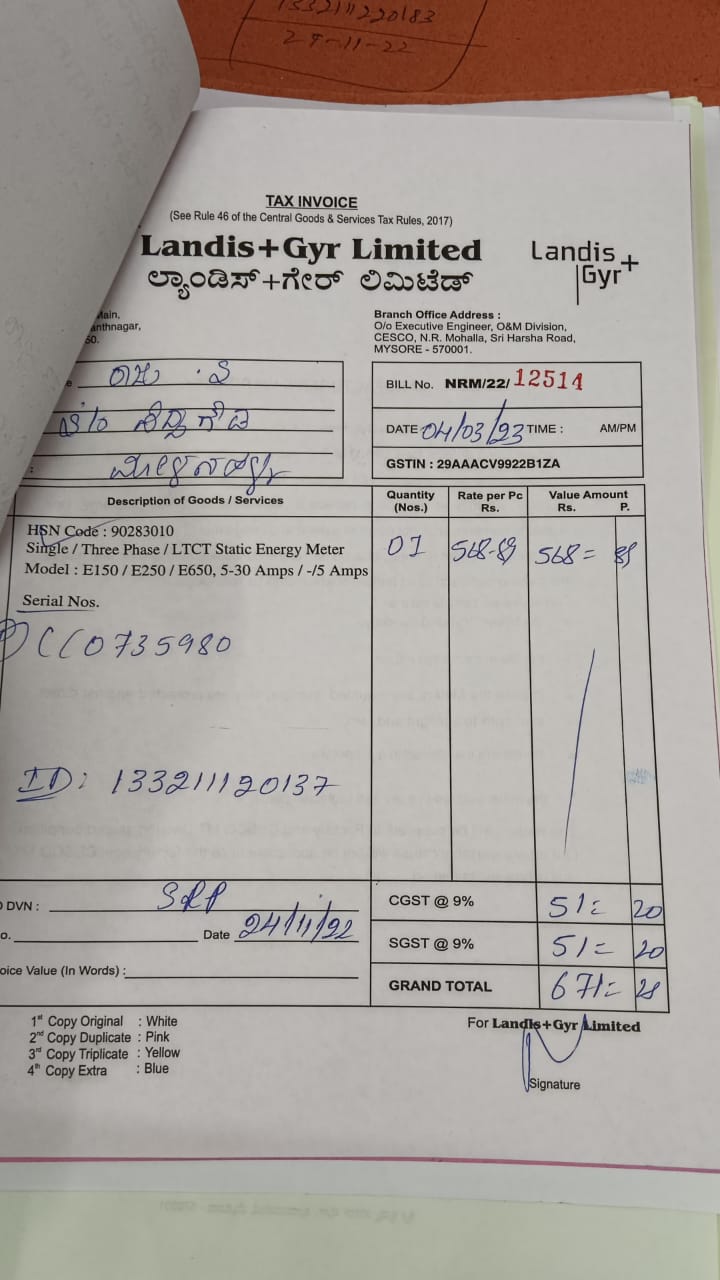 133211220183
29-11-22
TAX INVOICE
(See Rule 46 of the Central Goods & Services Tax Rules, 2017)
Landis+Gyr Limited
ಲ್ಯಾಂಡಿಸ್+ಗೇರ್ ಲಿಮಿಟೆಡ್
Landis+
Gyr+
Main,
anthnagar,
Branch Office Address :
O/o Executive Engineer, O&M Division,
CESCO, N.R. Mohalla, Sri Harsha Road,
MYSORE - 570001.
BILL No. NRM/22/ 12514
DATE 04/03/23 TIME : AM/PM
GSTIN : 29AAACV9922B1ZA
Description of Goods / Services
Quantity (Nos.)
Rate per Pc Rs.
Value Amount Rs. P.
HSN Code : 90283010
Single / Three Phase / LTCT Static Energy Meter
Model : E150 / E250 / E650, 5-30 Amps / -/5 Amps
01 568-89 568= 89
Serial Nos.
0735980
ID: 133211120137
DVN : SRP
o. Date 24/11/22
oice Value (In Words) :
CGST @ 9% 51= 20
SGST @ 9% 51= 20
GRAND TOTAL 671=
1st Copy Original : White
2nd Copy Duplicate : Pink
3rd Copy Triplicate : Yellow
4th Copy Extra : Blue
For Landis+Gyr Limited
Signature